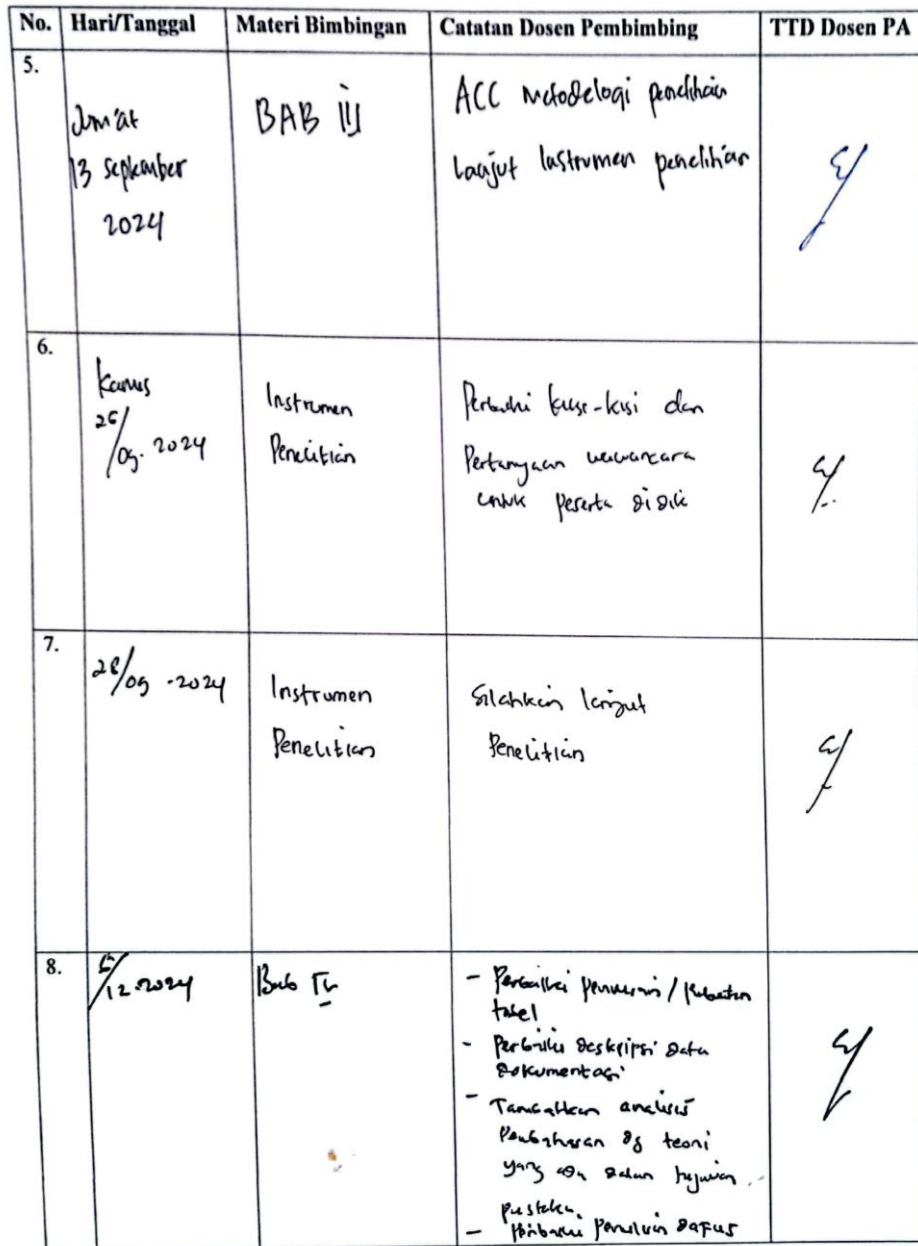 No. Hari/Tanggal Materi Bimbingan Catatan Dosen Pembimbing TTD Dosen PA
5.
Jum'at
13 September
2024
BAB III
ACC Metodelogi penelitian
Lanjut Instrumen penelitian
6.
Kamis
26/09. 2024
Instrumen
Penelitian
Perbaiki kisi-kisi dan
Pertanyaan wawancara
untuk peserta didik
7.
28/09 -2024
Instrumen
Penelitian
Silahkan lanjut
Penelitian
8.
/12.2024
Bab IV
- Perbaiki /
tabel
- Perbaiki deskripsi data
dokumentasi
- Tambahkan analisis
Pembahasan dg teori
yang ada dalam
pustaka
- Perbaiki penulisan dapus